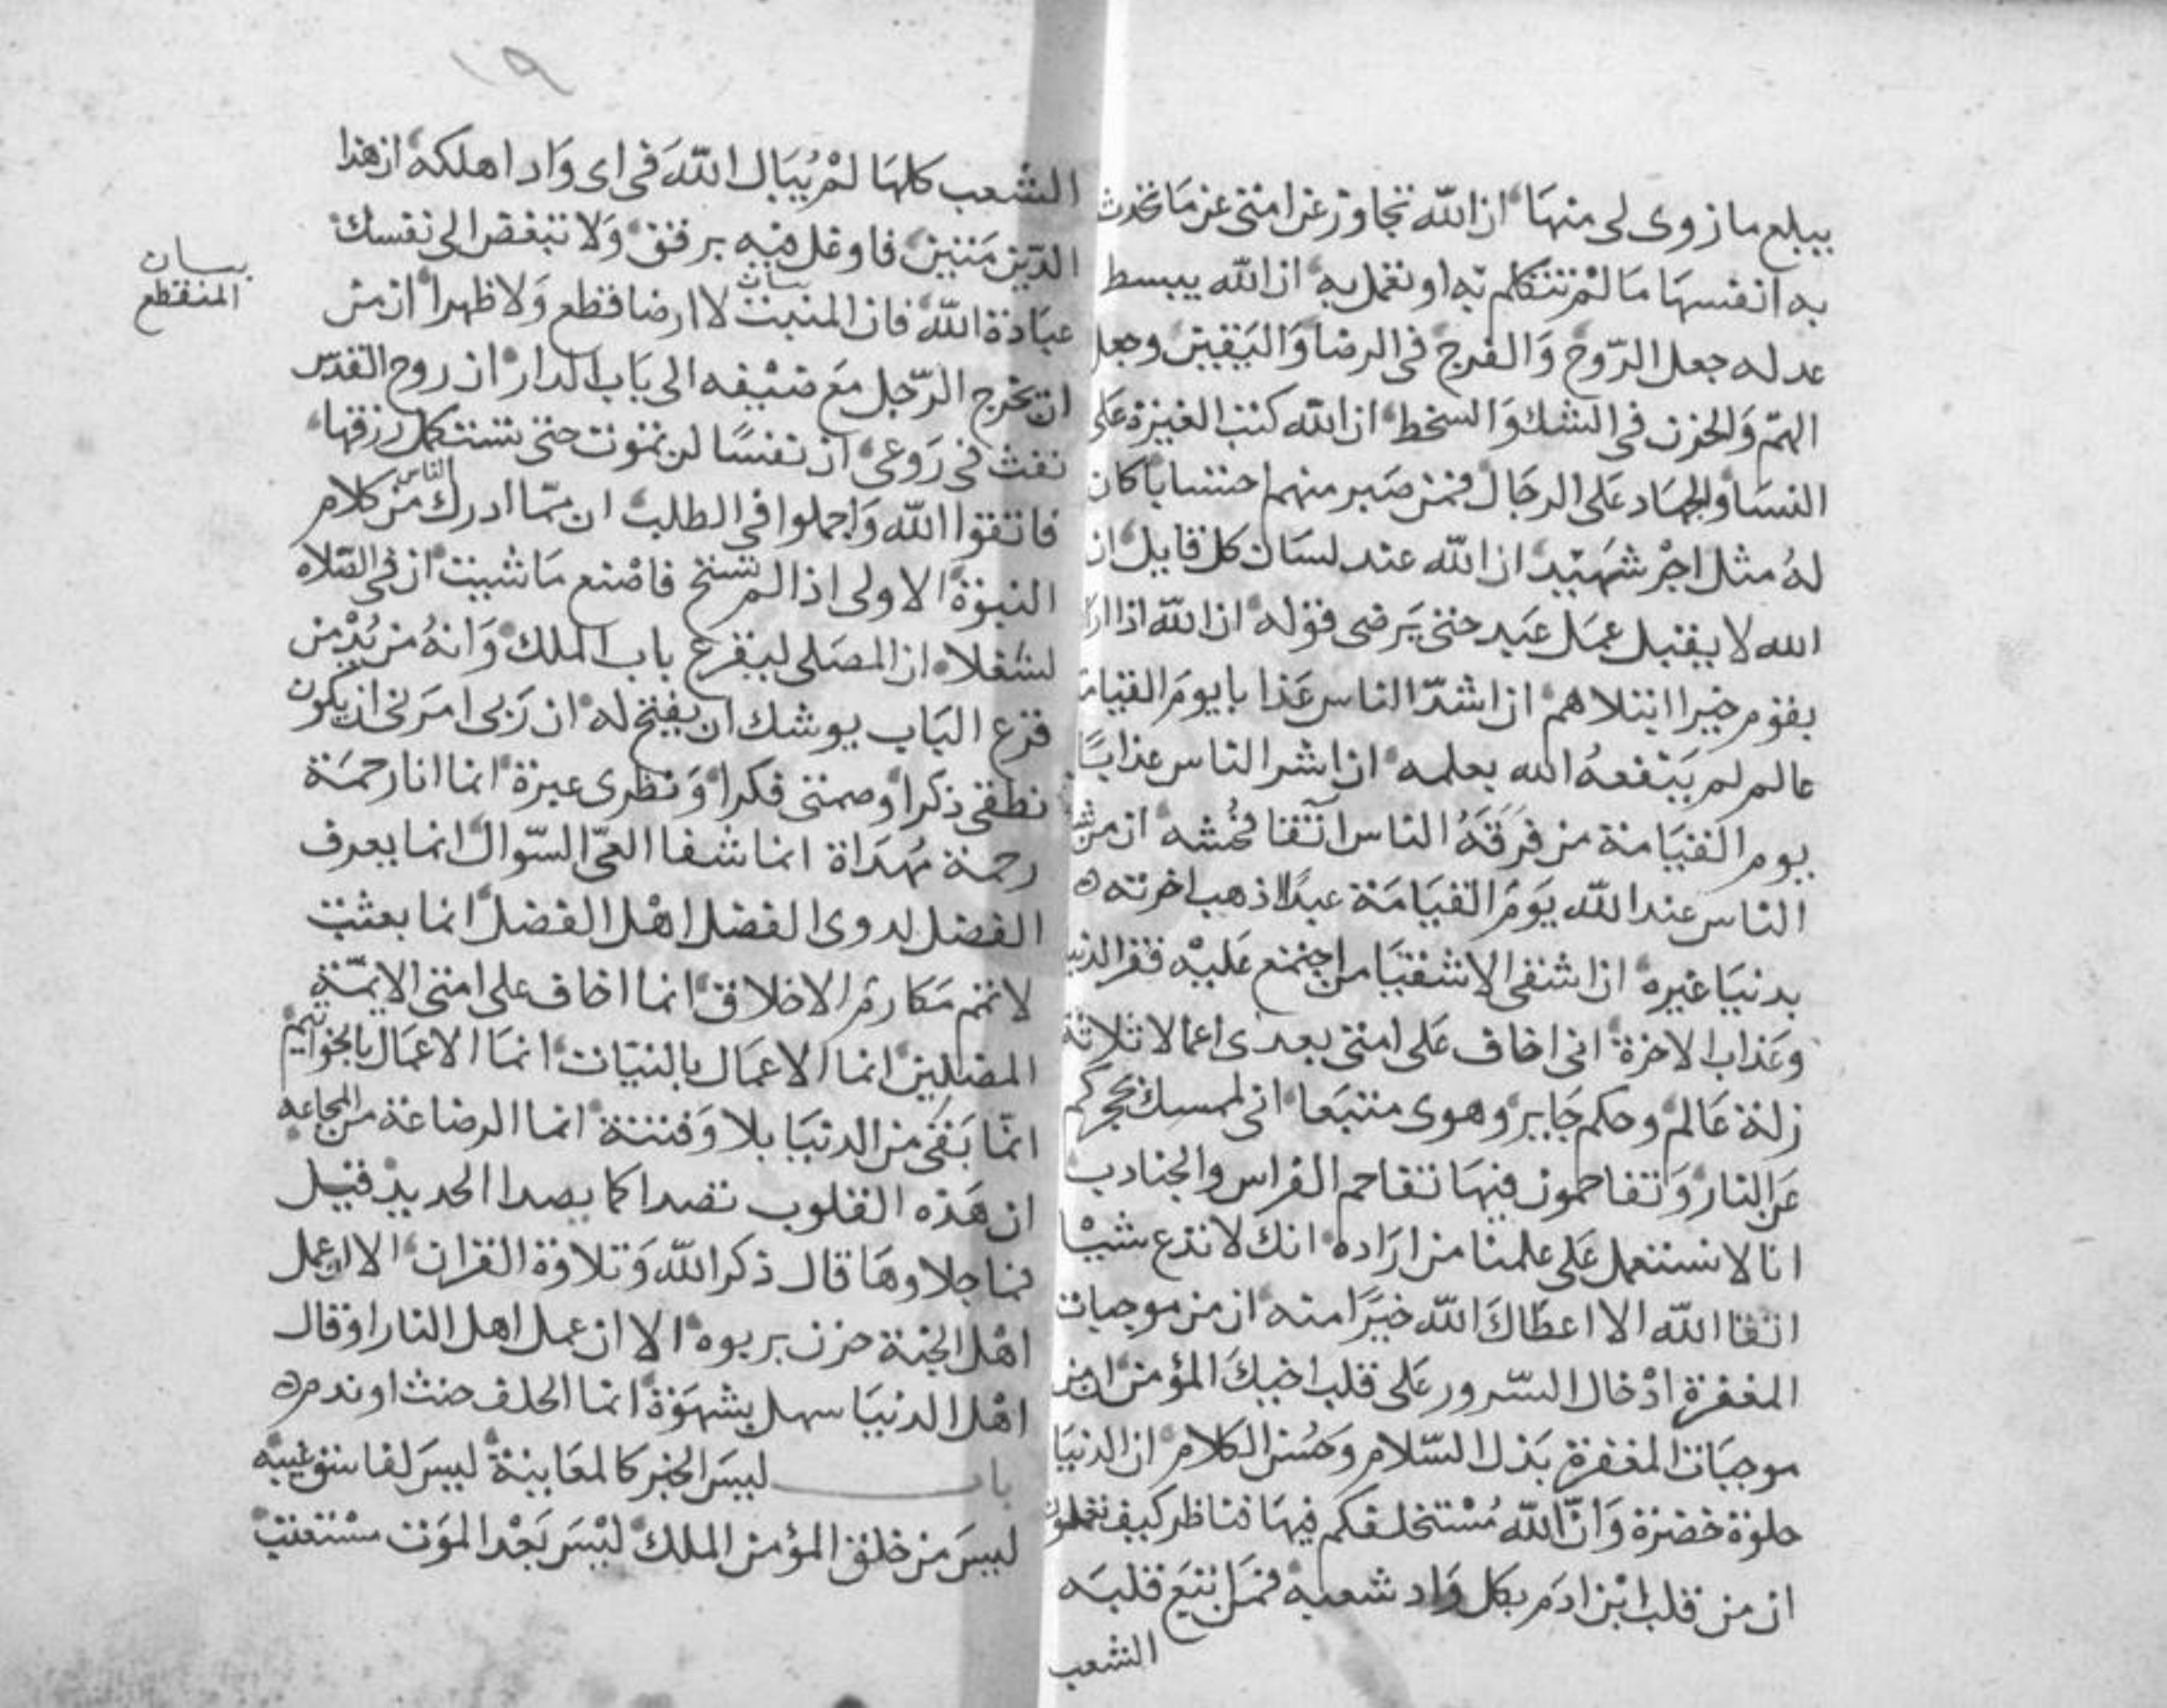 يبلغ ما زوى لى منها ان الله تجاوز عن امتى عن ما تحدث
به انفسها ما لم تتكلم به او تعمل به ان الله يبسط
عدله جعل الروح والفرج فى الرضا واليقين وجعل
الهم والحزن فى الشك والسخط ان الله كتب الغيرة على
النسا والجهاد على الرجال فمن صبر منهم احتسابا كان
له مثل اجر شهيد ان الله عند لسان كل قايل ان
الله لا يقبل عمل عبد حتى يرضى قوله ان الله اذا ارا
بقوم خيرا ابتلاهم ان اشد الناس عذابا يوم القيامة
عالم لم ينفعه الله بعلمه ان اشر الناس عذابا
يوم القيامة من فرقه الناس اتقا فحشه ان من شر
الناس عند الله يوم القيامة عبدا ذهب اخرته
بدنيا غيره ان اشقى الاشقيا من اجتمع عليه فقر الدنيا
وعذاب الاخرة انى اخاف على امتى بعدى اعمالا ثلاثة
زلة عالم وحكم جاير وهوى متبعا انى لممسك بحجزكم
عن النار وتقاحمون فيها تقاحم الفراس والجنادب
انا لا نستعمل على علمنا من اراده انك لا تدع شيا
اتقا الله الا اعطاك الله خيرا منه ان من موجبات
المغفرة ادخال السرور على قلب اخيك المؤمن ان من
موجبات المغفرة بذل السلام وحسن الكلام ان الدنيا
حلوة خضرة وان الله مستخلفكم فيها فناظر كيف تعملون
ان من قلب ابن ادم بكل واد شعبه فمن اتبع قلبه
الشعب
١٩
الشعب كلها لم يبال الله فى اى واد اهلكه ان هذا
الدين متين فاوغل فيه برفق ولا تبغض الى نفسك
عبادة الله فان المنبت لا ارضا قطع ولا ظهرا ان من
بيان
المنقطع
ان يخرج الرجل مع ضيفه الى باب الدار ان روح القدس
نفث فى روعى ان نفسا لن تموت حتى تستكمل رزقها
فاتقوا الله واجملوا فى الطلب ان مما ادرك الناس من كلام
النبوة الاولى اذا لم تستح فاصنع ما شيت ان فى الصلاه
لشغلا ان المصلى ليقرع باب الملك وانه من يدمن
قرع الباب يوشك ان يفتح له ان ربى امرنى ان يكون
نطقى ذكرا وصمتى فكرا ونظرى عبرة انما انا رحمة
رحمة مهداة انما شفا العى السوال انما يعرف
الفضل لدوى الفضل اهل الفضل انما بعثت
لاتمم مكارم الاخلاق انما اخاف على امتى الايمة
المضلين انما الاعمال بالنيات انما الاعمال بالخواتيم
انما بقى من الدنيا بلا وفتنة انما الرضاعة من المجاعه
ان هذه القلوب تصدا كما يصدا الحديد قيل
فما جلاوها قال ذكر الله وتلاوة القران الا ان عمل
اهل الجنة حزن بربوه الا ان عمل اهل النار او قال
اهل الدنيا سهل بشهوة انما الحلف حنث او ندم
باب ليس الخبر كالمعاينة ليس لفاسق غيبه
ليس من خلق المؤمن الملك ليس بعد الموت مستعتب